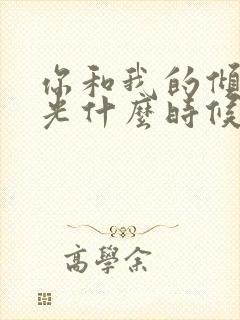 你和我的傾
光什麼時候
高學余